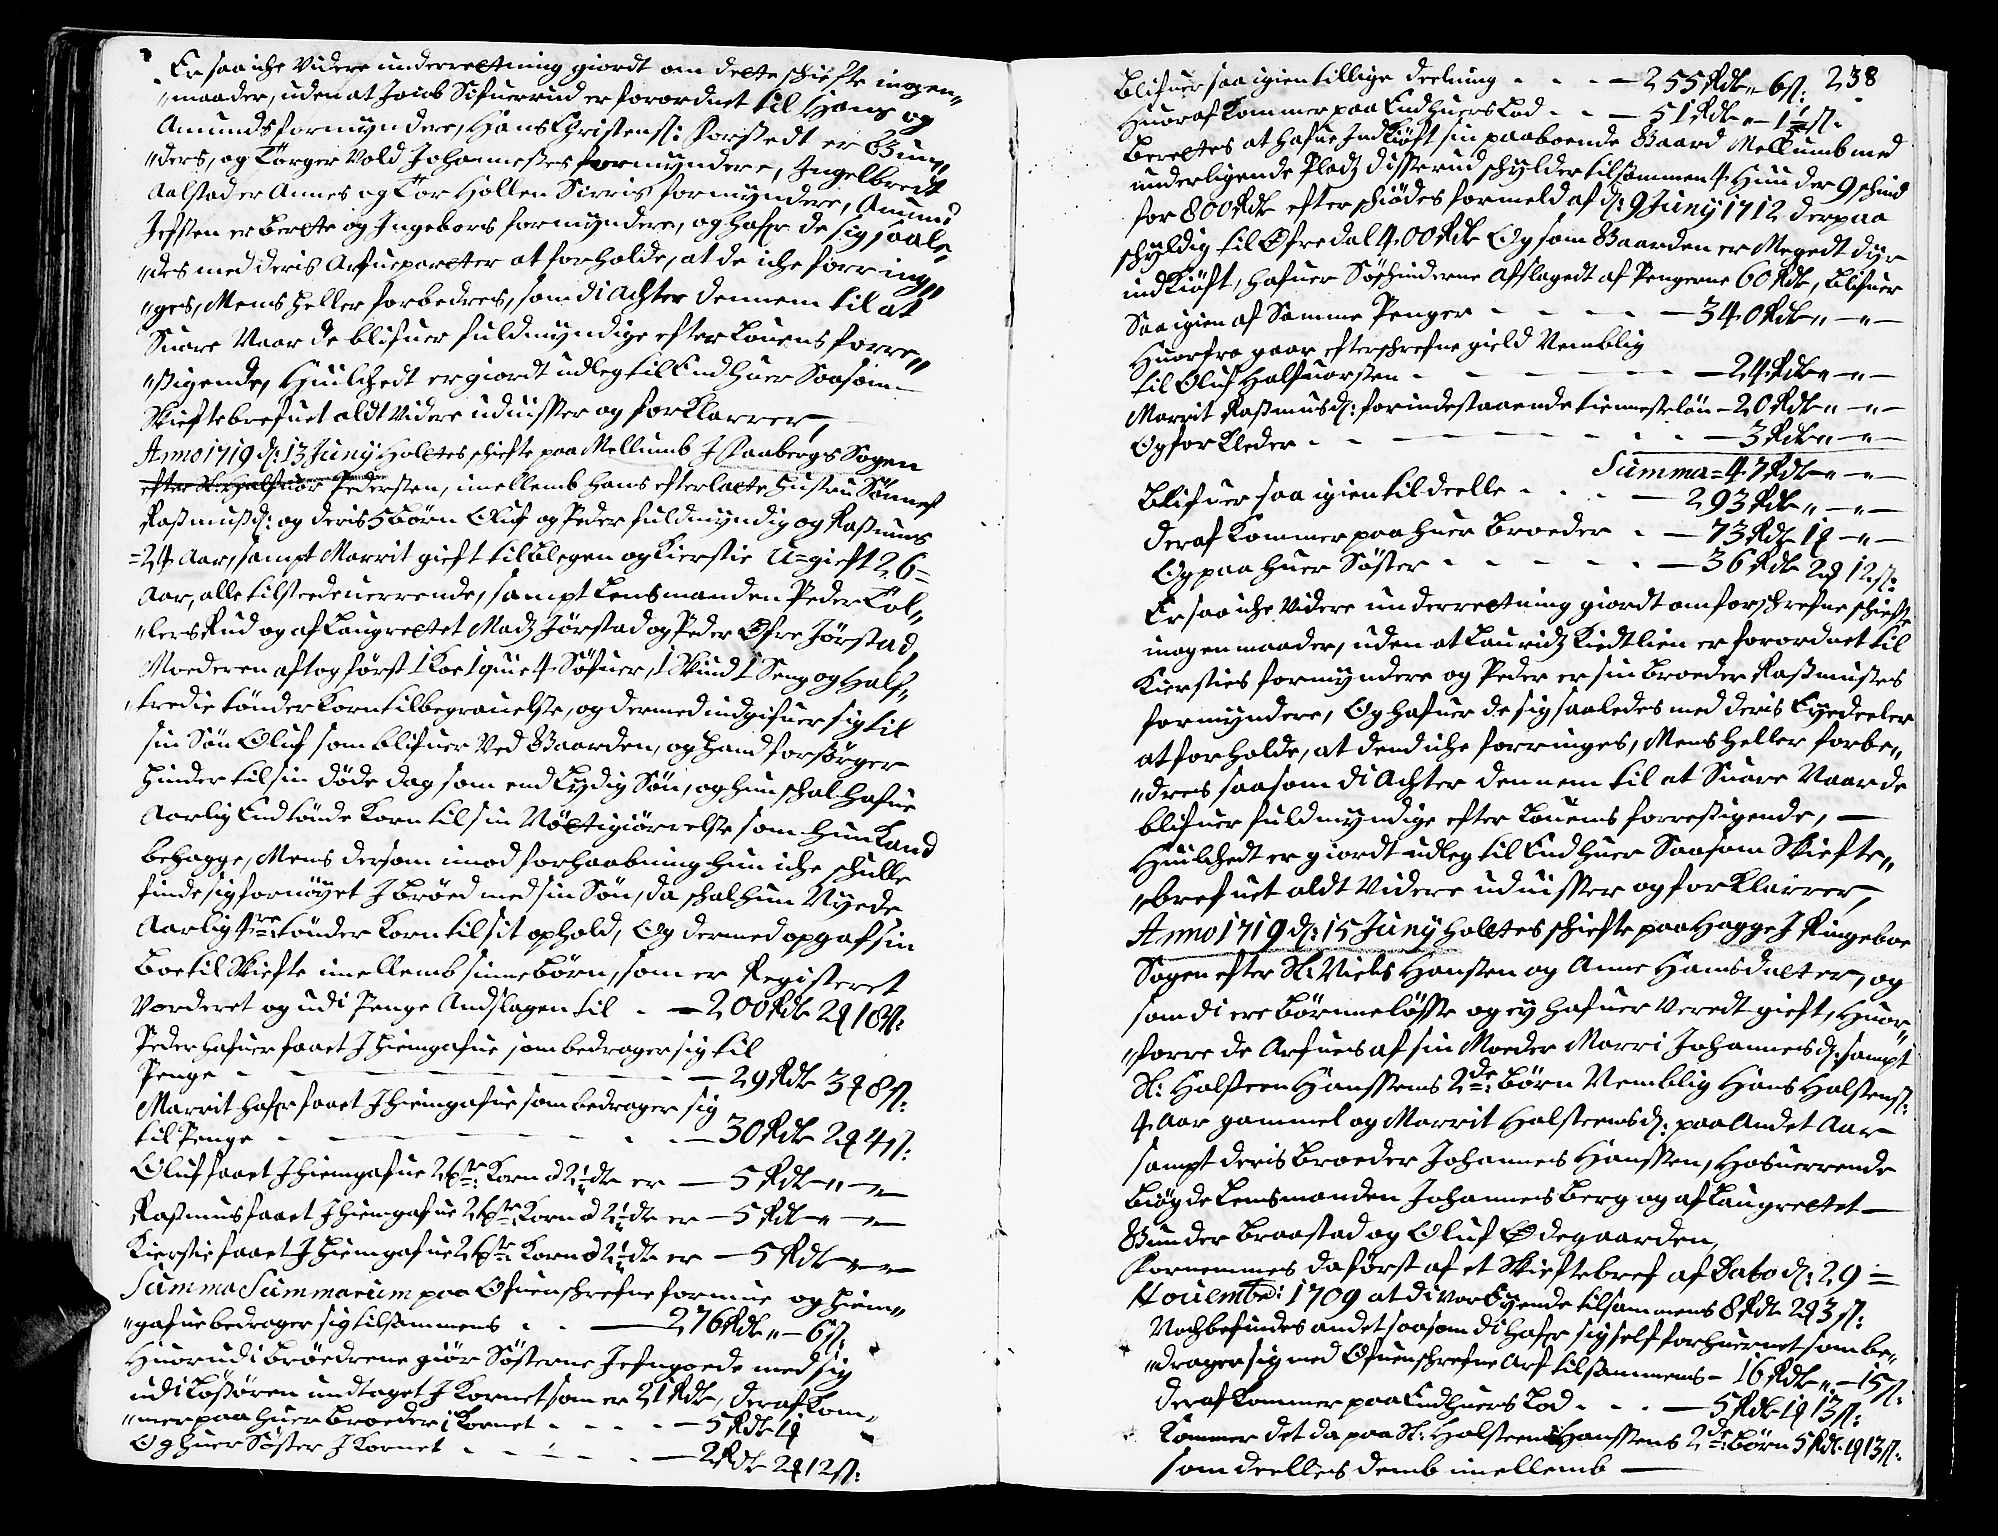 Er saa iche Videre underrectning giordt om dette schiefte i nogen„
„maader, uden at Jacob Sifuerrud er forordnet til Hans og
Amunds formyndere, Hans Christens: Korstedt er Gun„
„ders, og Torger Vold Johannesses formyndere, Ingelbredt
Aalstad er Annes og Tor Hollen Sirris formyndere, Amund
Jefsen er Berete og Ingebors formyndere, og hafr de sig saale„
„des med deris Arfueparcter at forholde, at de iche forring„
„ges, Mens heller forbedres, som di Achter dennem til at
Suare Naar de blifuer fuldmyndige efter Louens forre„
„sigende, Huilchedt er giordt udleg til End huer Saasom
Skieftebrefuet aldt Videre uduisser og forKlarrer,
Anno 1719 d: 13 Juny Holtes schiefte paa Mellumb J Faabergs Sogen
efter Sl: Halfuor Pedersen, imellemb hans efterlatte hustru Sønnef
Rasmusd: og deris 5 børn Oluf og Peder fuldmyndig og Rasmus
=24 Aar, sampt Marrit gieft til Klegen og Kierstie U=gieft 26=
Aar, alle tilstedeuerrende, sampt Lensmanden Peder Tol„
„lersRud og af Laugrectet Madz Jørstad og Peder Øfre Jørstad,
Moederen aftog først 1 Koe 1 quie 4 Søfuer, 1 Skind 1 Seng og half„
„tredie tønder Korn til begrauelse, og dermed indgifuer sig til
sin Søn Oluf som blifuer Ved Gaarden, og hand forsørger
hinder til sin døde dag som end Lydig Søn, og hun schal hafue
Aarlig End tønde Korn til sin Nøctigiørrelse som hun Kand
behagge, Mens dersom imod forhaabning hun iche schulle
finde sig fornøyet J brøed med sin Søn, da schal hun Nyede
Aarlig 4re tønder Korn til sit ophold, Og dermed opgaf sin
Boe til Skiefte imellemb sinne børn, som er Registeret
Vorderet og udi Penge Andslagen til - - 200 Rdl 2ꝗ 18s:
Peder hafuer faaet J hiemgafue som bedrager sig til
Penge - - - - - 29 Rdl 3ꝗ 8s:
Marrit hafr faaet J hiemgafue som bedrager sig
til Penge - - - - - 30 Rdl 2ꝗ 4s:
Oluf faaet J hiemgafue 2 tr: Korn a 2½ dr er - 5 Rdl „ - „ -
Rasmus faaet J hiemgafue 2 tr: Korn a 2½ dr er - 5 Rdl „ - „ -
Kierstie faaet J hiemgafue 2 tr: Korn a 2½ dr er - 5 Rdl „ - „ -
Summa Summarum paa Ofuenschrefne formue og hiem„
„gafue bedrager sig tilsammens - - - 276 Rdl „ - 6s:
Huorudi brøedrene giør Søsterne Jefngoede med sig
udi Løsøren undtaget J Kornet som er 21 Rdl, deraf Kom„
„mer paa huer broeder i Kornet - - - - 5 Rdl 1ꝗ
Og huer Søster J Kornet - - - - - 2 Rdl 2ꝗ 12s:
238
Blifuer saa igien tillige deelning - - - 255 Rdl „ 6s:
Huoraf Kommer paa End huers Lod - - - 51 Rdl „ - 1½ s:
Berectes at hafue Ind Kiøft sin paaboende Gaard Mellumb med
underligende Pladz Disserud schylder tilsammen 4 Huuder 9 schind
for 800 Rdl efter schiødes formeld af d: 9 Juny 1712 derpaa
schyldig til Øfredal 400 Rdl Og som Gaarden er Megedt dyr
indKiøft, hafuer Søschinderne Afslagedt af Pengerne 60 Rdl, blifuer
Saa igien af Samme Penger - - - - 340 Rdl „ - „ -
Huorfra gaar efterschrefne gield Nemblig
til Oluf Halfuorsen - - - - - 24 Rdl „ - „ -
Marrit Rasmusd: for indestaaende tiennesteløn - 20 Rdl „ - „ -
Og for Kleder - - - - - - 3 Rdl „ - „ -
Summa = 47 Rdl „ - „ -
Blifuer saa igien til deelle - - - - 293 Rdl „ - „ -
deraf Kommer paa huer broeder - - 73 Rdl 1ꝗ - „ -
Og paa huer Søster - - - - - 36 Rdl 2ꝗ 12s:
Er saa iche Videre underrectning giordt om forschrefne schiefte
i nogen maader, uden at Lauridz Kiedtlien er forordnet til
Kiersties formyndere og Peder er sin broeder Rasmusses
formyndere, Og hafuer de sig saaledes med deris Eyedeeler
at forholde, at dend iche forringes, Mens heller forbe„
„dres saasom di Achter dennem til at Suare Naar de
blifuer fuldmyndige efter Louens forresigende, -
Huilchedt er giordt udleg til End huer Saasom Skiefte„
„brefuet aldt Videre uduisser og forKlarrer,
Anno 1719 d: 15 Juny Holtes schiefte paa Hagge J Ringeboe
Sogen efter Sl: Niels Hansen og Anne Hansdatter, og
som di ere børnneløsse og ey hafuer Veredt gieft, Huor„
„forre de Arfues af sin Moeder Marri Johannesd: sampt
Sl: Halsteen Hanssens 2de: børn Nemblig Hans Halstens:
4 Aar gammel og Marrit Halsteensd: paa Andet Aar
sampt deris broeder Johannes Hanssen, Hosuerrende
bøigdeLensmanden Johannes Berg og af Laugrectet -
Gunder Braastad og Oluf Ødegaarden,
Fornemmes da først af et Skieftebref af Dato d: 29 =
Nouembr: 1709 at di var Eyende tilsammens 8 Rdl 2ꝗ 3s:
Noch befindes andet saasom di hafr sig self forhuerrnet som be„
„drager sig med Ofuenschrefne Arf tilsammens - 16 Rdl „ - 15s:
deraf Kommer paa End huers Lod - - - 5 Rdl 1ꝗ 13s:
Kommer det da paa Sl: Halsteens Hanssens 2de: børn 5 Rdl 1ꝗ 13s:
som deelles demb imellemb -